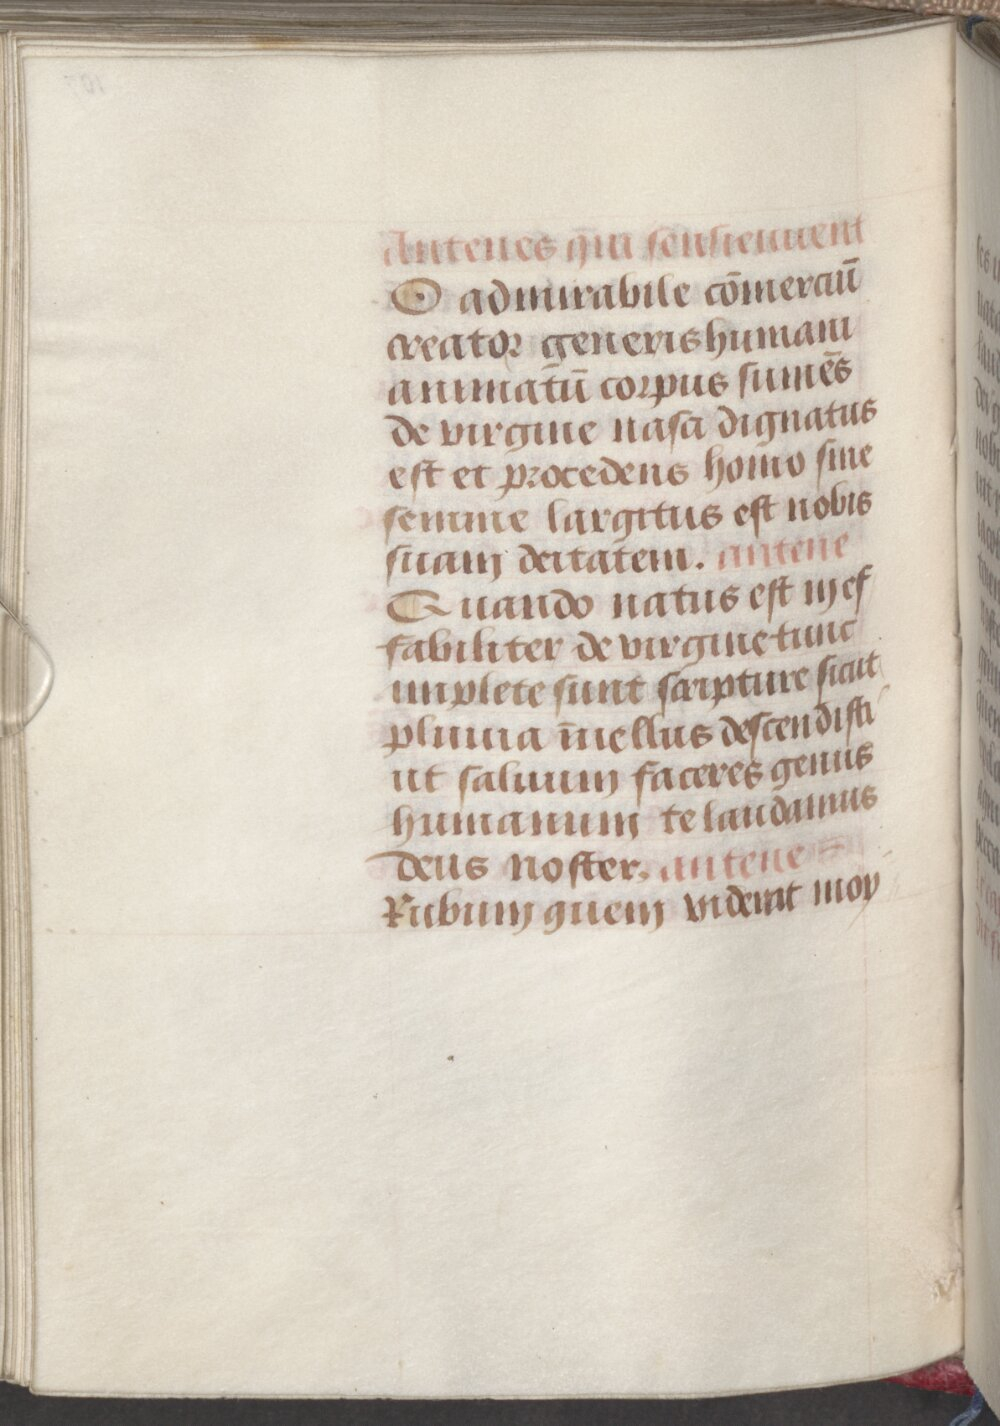 Antenes q̄ui sensieuuent
O admirabile cōmerciū
creator generis humani
animatū corpus sumēs
de virgine nasci dignatus
est et procedens homo sine
semine largitus est nobis
suam deitatem. antene
Quando natus est in ef
fabiliter de virgine tunc
implete sunt scripture sicut
pluuia īnellus descendisti
ut saluum faceres genus
humanum te laudamus
deus noster. antene
Rubum quem viderat moy